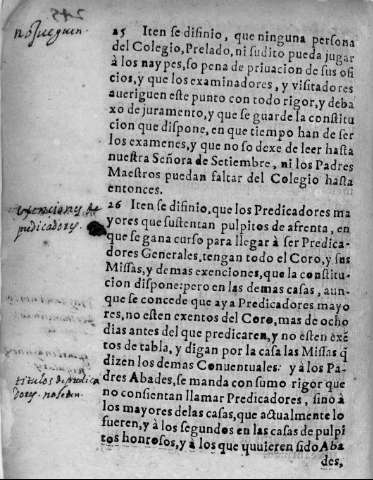 245
no jueguen.
25 Iten se difinio, que ninguna persona
del Colegio, Prelado, ni sudito pueda jugar
à los naypes, so pena de priuacion de sus ofi
cios, y que los examinadores, y visitadores
aueriguen este punto con todo rigor, y deba
xo de juramento, y que se guarde la constitu
cion que dispone, en que tiempo han de ser
los examenes, y que no se dexe de leer hasta
nuestra Señora de Setiembre, ni los Padres
Maestros puedan faltar del Colegio hasta
entonces.
exenciones de
predicadores.
26 Iten se difinio, que los Predicadores ma
yores que sustentan pulpitos de afrenta, en
que se gana curso para llegar à ser Predica-
dores Generales, tengan todo el Coro, y sus
Missas, y demas exenciones, que la constitu-
cion dispone: pero en las demas casas, aun-
que se concede que aya Predicadores mayo
res, no esten exentos del Coro, mas de ocho
dias antes del que predicaren, y no esten exẽ
tos de tabla, y digan por la casa las Missas q̃
dizen los demas Conuentuales: y à los Pa-
dres Abades, se manda con sumo rigor que
no consientan llamar Predicadores, sino à
los mayores de las casas, que actualmente lo
fueren, y à los segundos en las casas de pulpi
tos honrosos, y à los que quuieren sido Aba
des,
titulos de predica
dores.